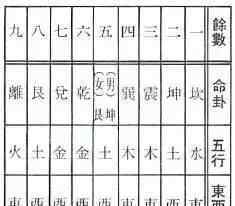 餘數 命卦 五行 東西
一 坎 水 東
二 坤 土 西
三 震 木 東
四 巽 木 東
五 (男)坤 (女)艮 土 西
六 乾 金 西
七 兌 金 西
八 艮 土 西
九 離 火 東